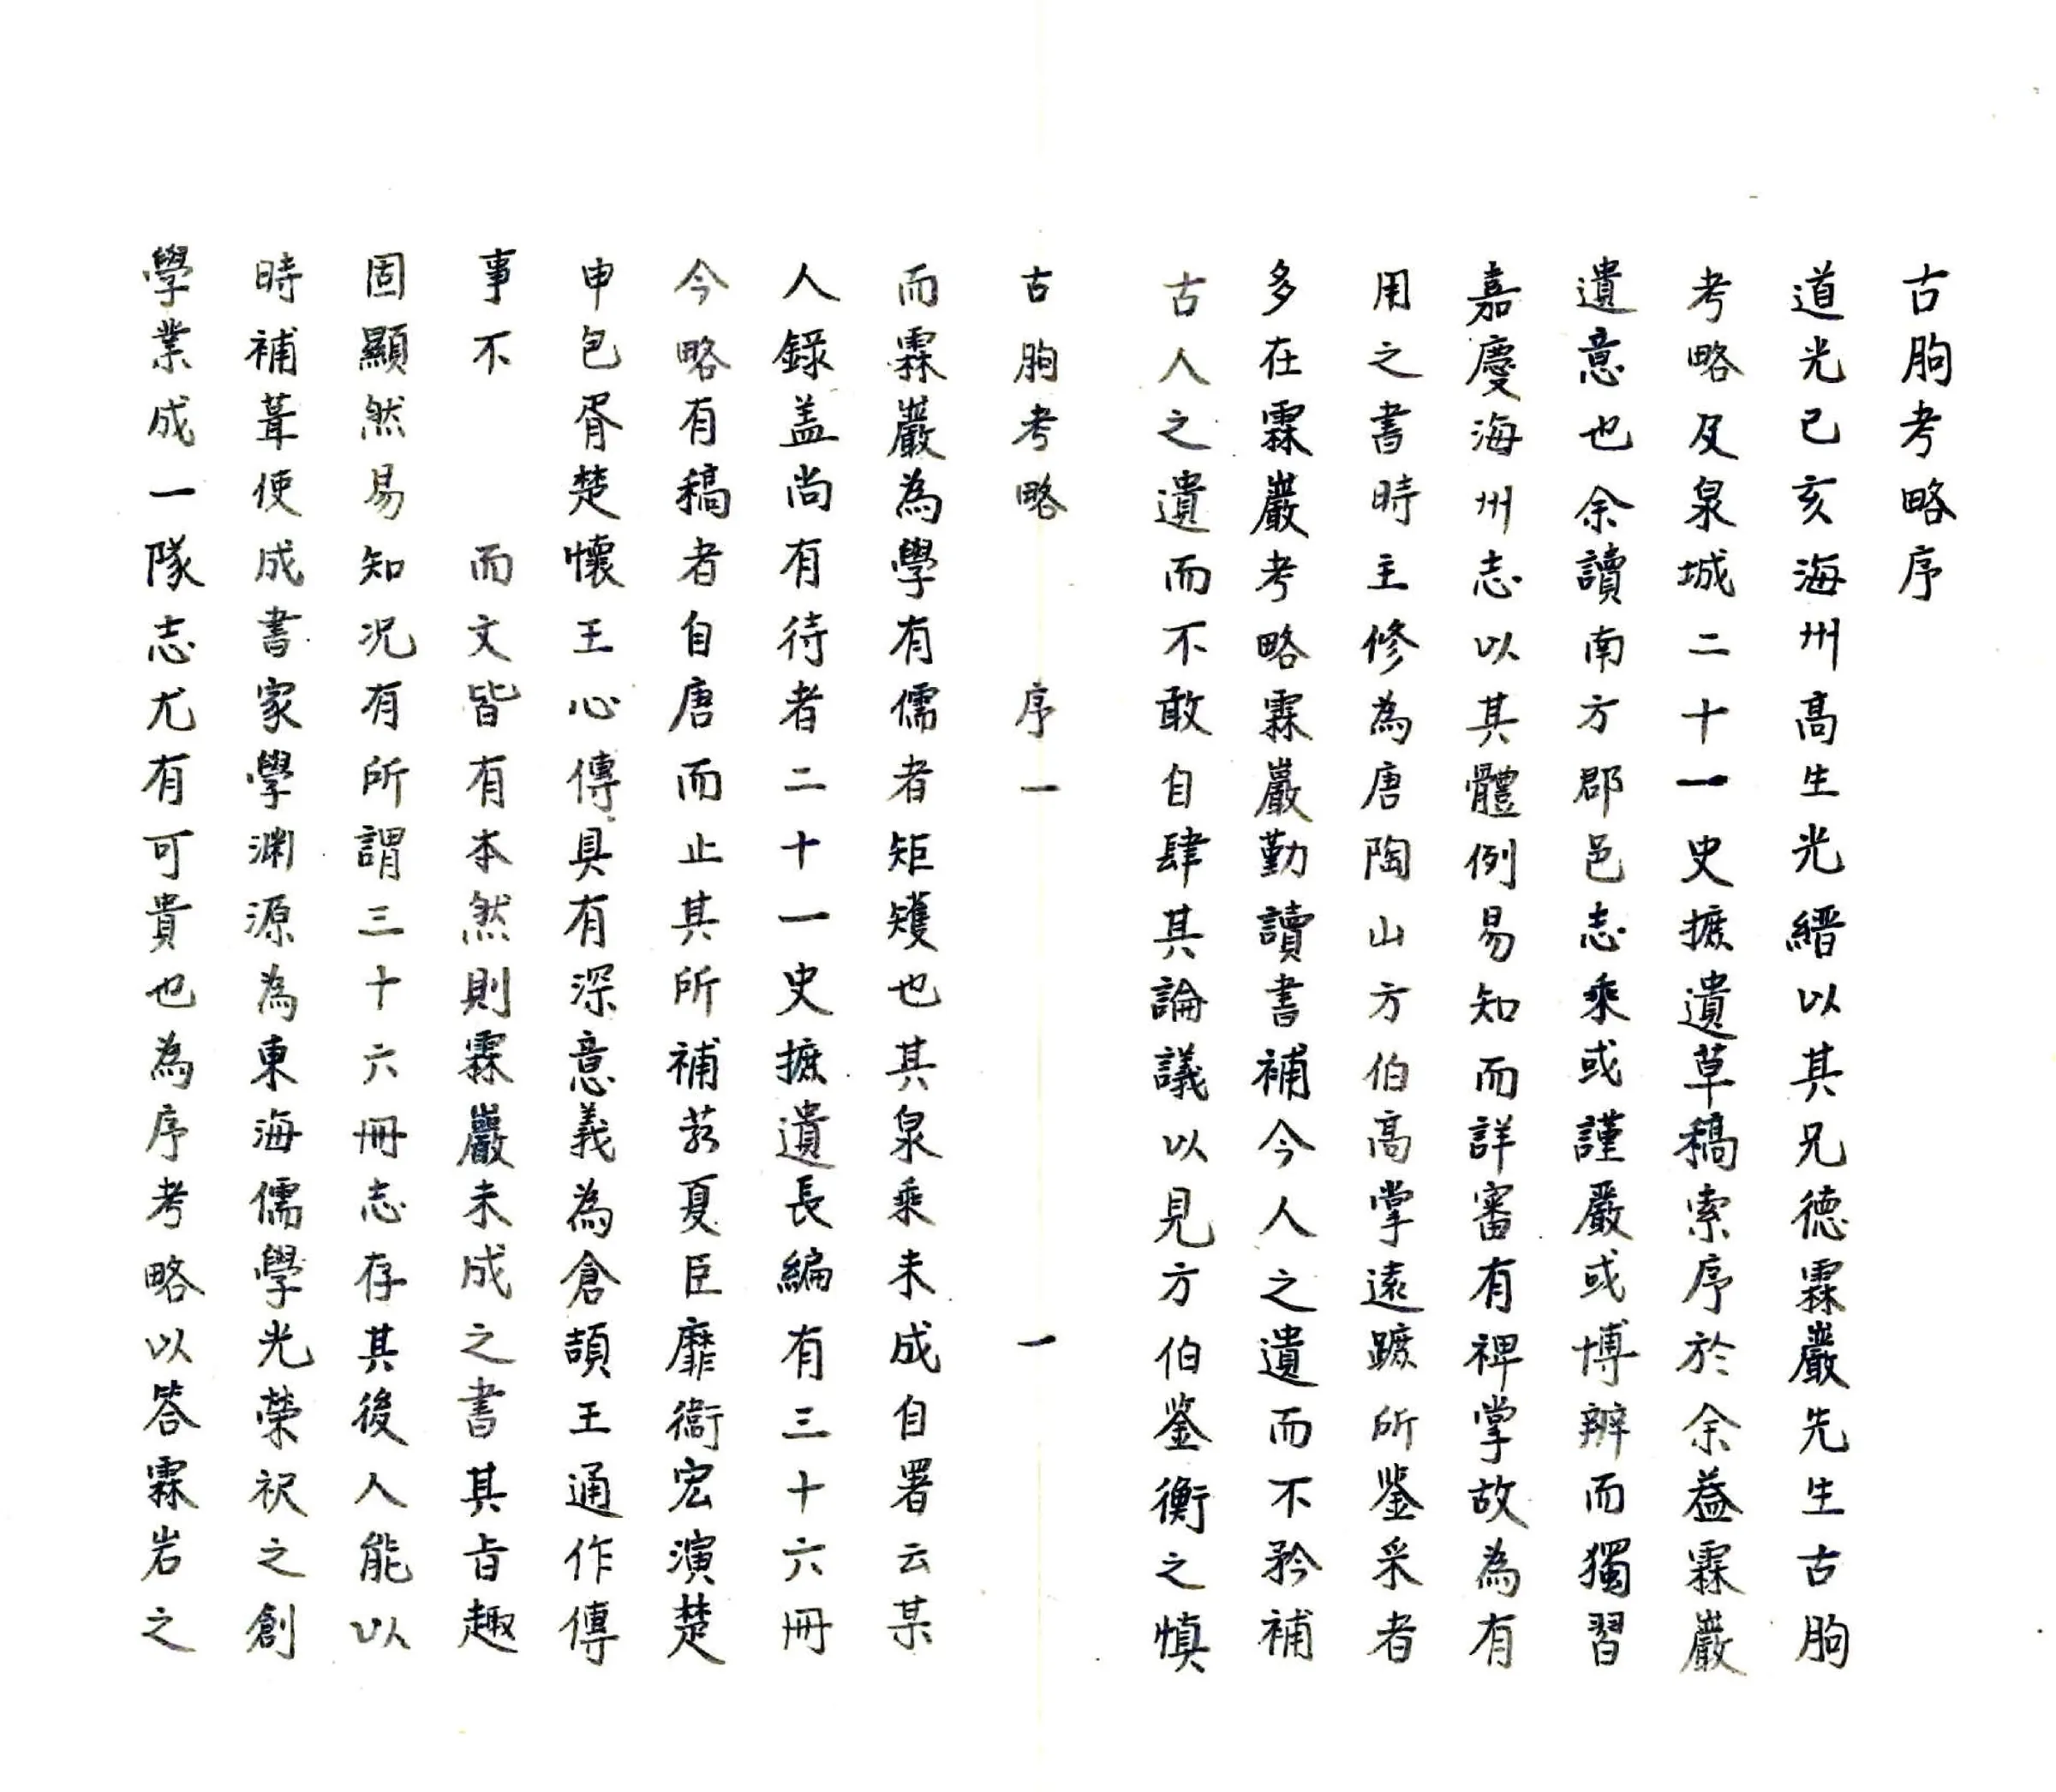 古朐考略序
道光己亥海州高生光縉以其兄德霖嚴先生古朐
考略及泉城二十一史摭遺草稿索序於余葢霖嚴
遺意也余讀南方郡邑志乘或謹嚴或博辨而獨習
嘉慶海州志以其體例易知而詳審有裨掌故為有
用之書時主修為唐陶山方伯高掌遠蹠所鉴采者
多在霖嚴考略霖巖勤讀書補今人之遺而不矜補
古人之遺而不敢自肆其論議以見方伯鉴衡之慎
古朐考略 序一 一
而霖嚴為學有儒者矩矱也其泉乘未成自署云某
人錄盖尚有待者二十一史摭遺長編有三十六冊
今略有稿者自唐而止其所補茘夏臣靡衞宏演楚
申包胥楚懷王心傳具有深意義為倉頡王通作傳
事不 而文皆有本然則霖巖未成之書其旨趣
固顯然易知况有所謂三十六冊志存其後人能以
時補葺使成書家學渊源為東海儒學光榮祝之創
學業成一隊志尤有可貴也為序考略以答霖岩之